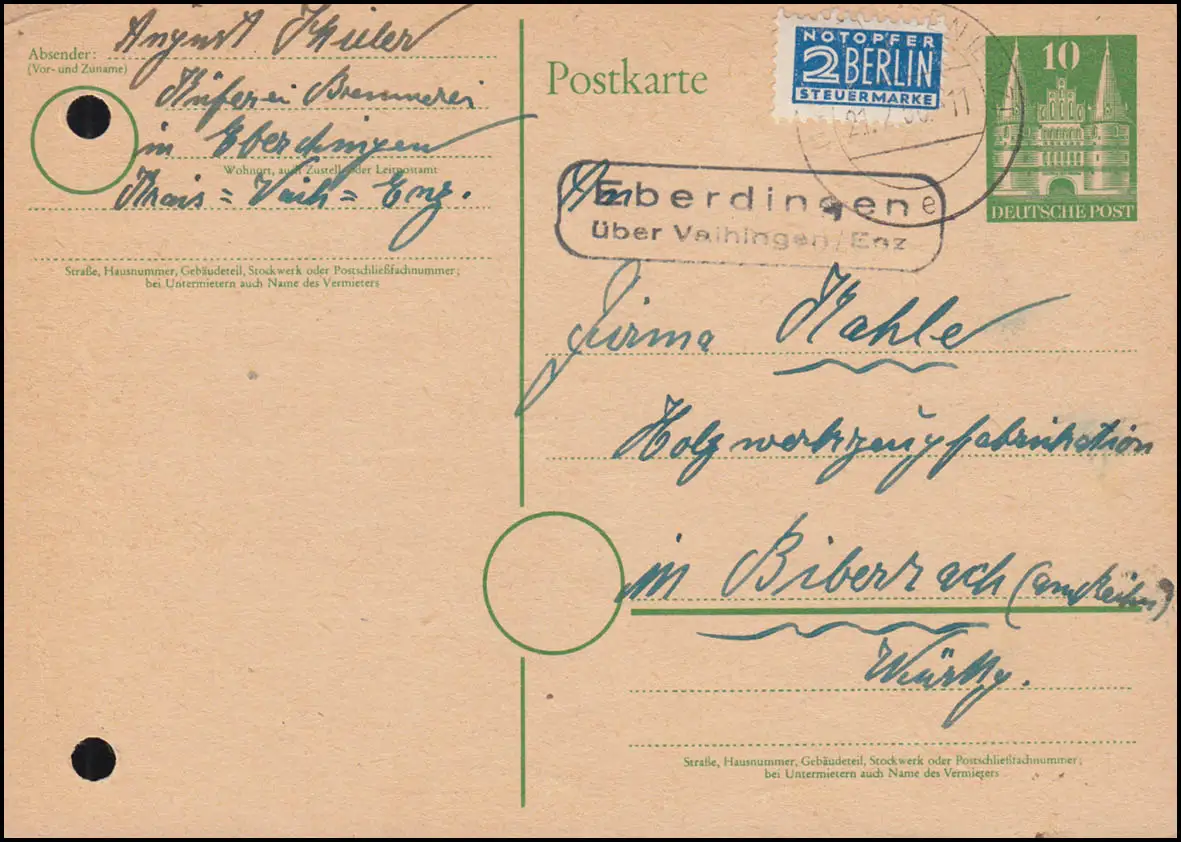 Absender: August
(Vor- und Zuname)
Küferei Brennerei
in Eberdingen
Wohnort, auch Zustell- oder Leitpostamt
Krais = Vaih = Enz.
Straße, Hausnummer, Gebäudeteil, Stockwerk oder Postschließfachnummer;
bei Untermietern auch Name des Vermieters
Postkarte
NOTOPFER
2 BERLIN
STEUERMARKE
10
DEUTSCHE POST
An
Eberdingen
über Vaihingen/Enz
e
Firma Kahle
Holzwerkzeugfabrikation
in Biberrach
Württg.
Straße, Hausnummer, Gebäudeteil, Stockwerk oder Postschließfachnummer;
bei Untermietern auch Name des Vermieters